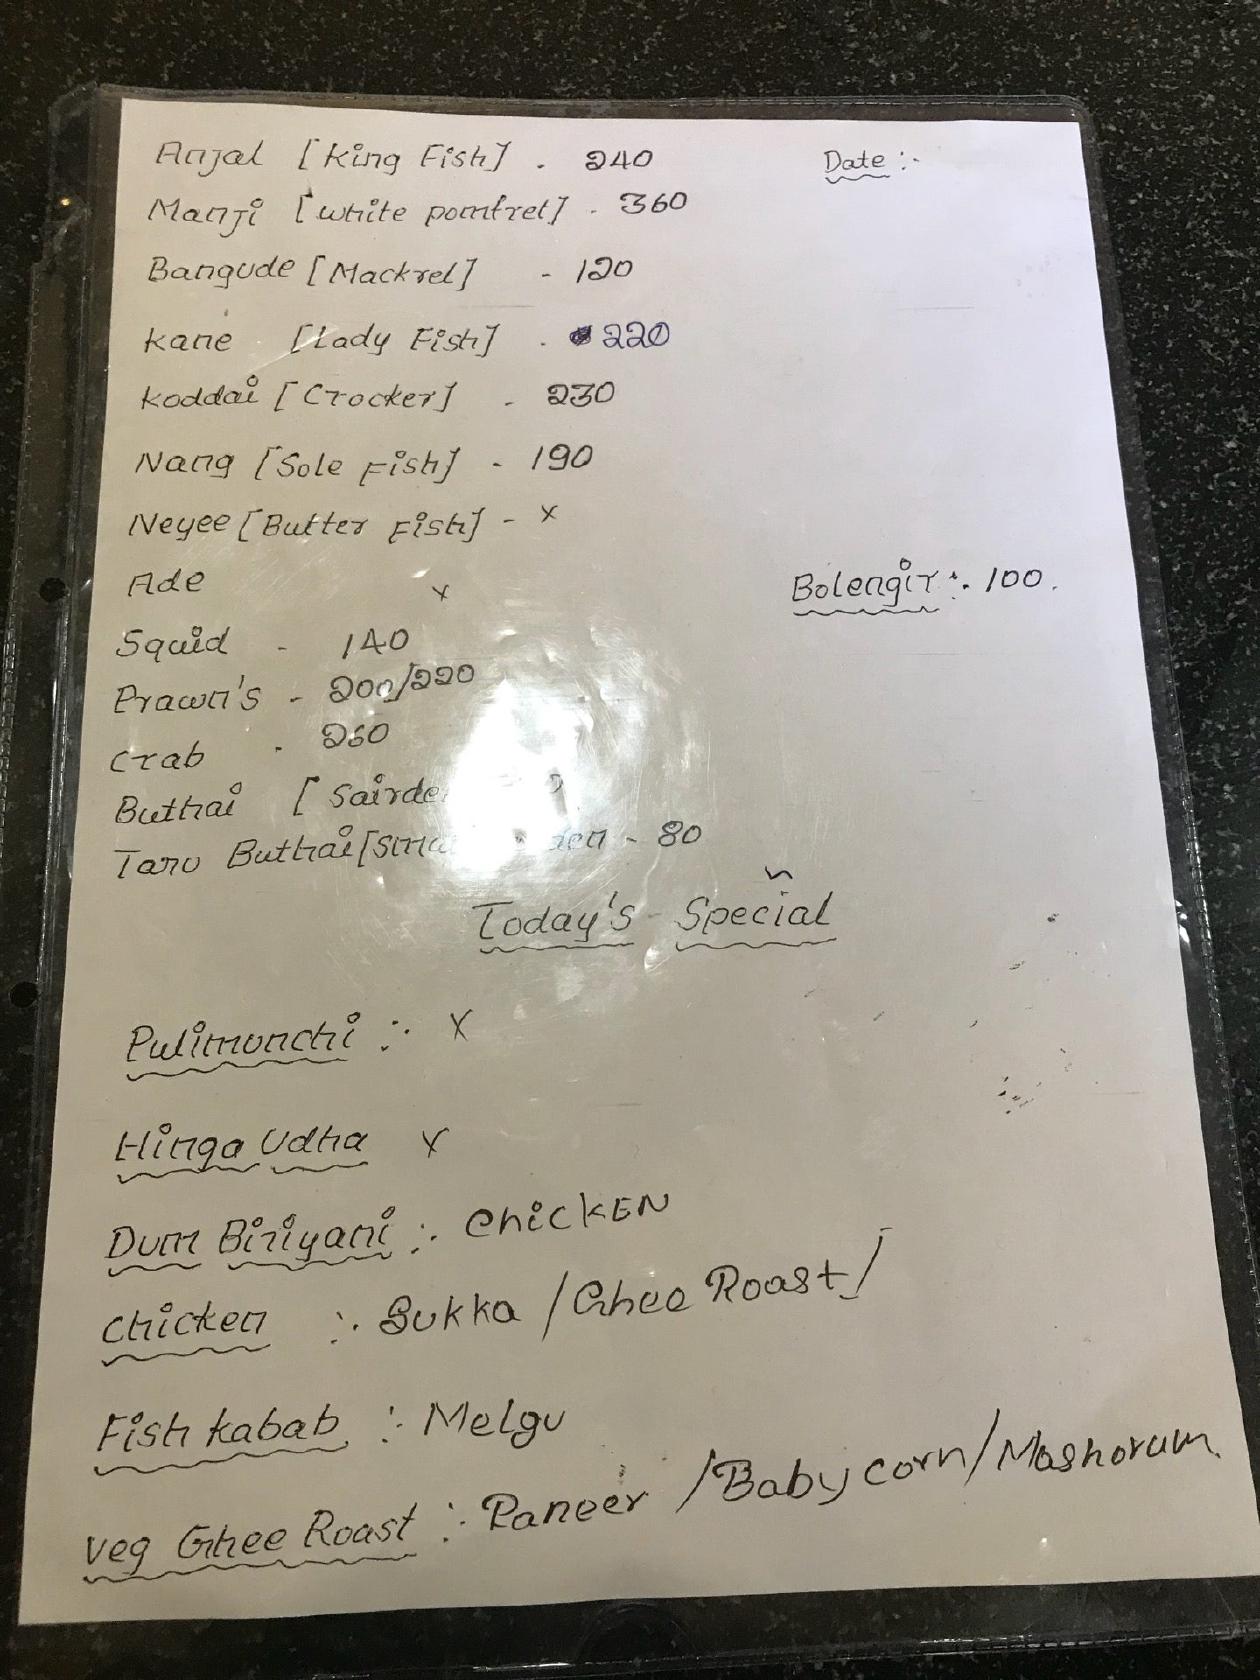 Anjal [King Fish] . 240
Date :-
Manji [white pomfret] . 360
Bangude [Mackrel] - 120
Kane [Lady Fish] . 220
Koddai [Crocker] - 230
Nang [Sole Fish] - 190
Neyee [Butter Fish] - x
Ade x
Bolengir :- 100.
Squid - 140
Prawn's - 200/220
Crab . 260
Buthai
Taru Buthai - 80
Today's Special
Pulimunchi :- X
Hinga Udha X
Dum Biriyani :- ChicKEN
Chicken :- Sukka / Ghee Roast /
Fish Kabab :- Melgu
Veg Ghee Roast :- Paneer / Baby corn / Mashorum